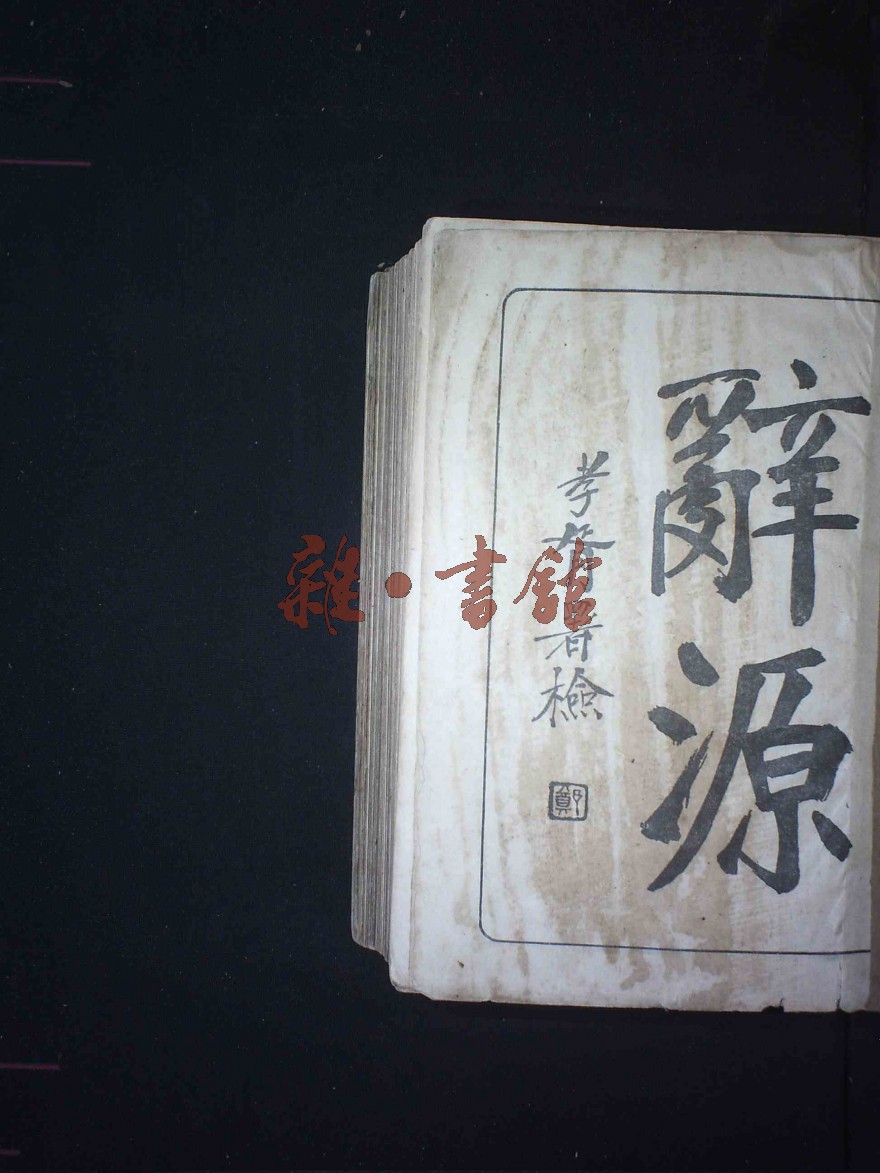 辭源
孝胥署檢
鄭
雜·書館